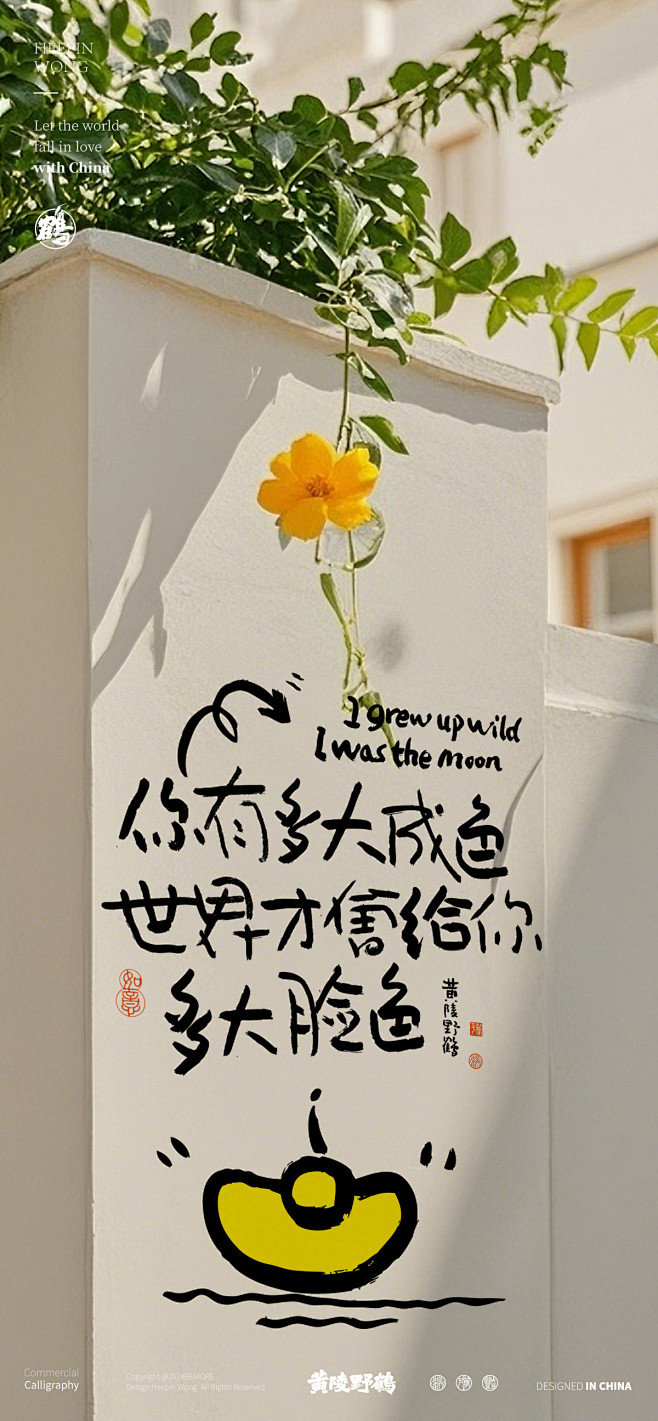 HEEPIN
WONG
Let the world
fall in love
with China
鶴
I grew up wild
I was the moon
你有多大成色
世界才会给你
多大脸色
如意
黄陵野鹤
Commercial
Calligraphy
Design Heepin Wong All Rights Reserved
黄陵野鹤
DESIGNED IN CHINA